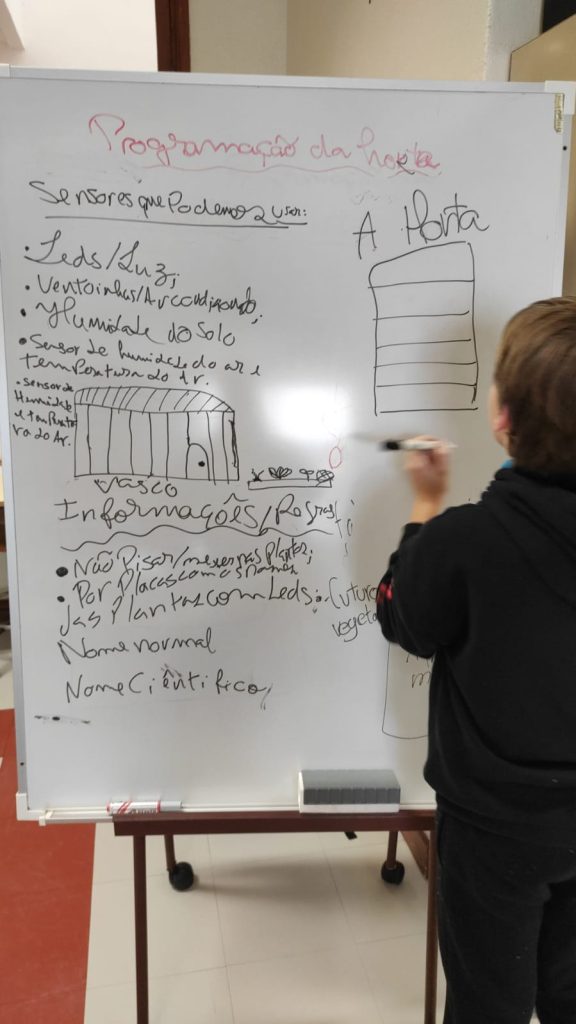 Programação da horta
Sensores que Podemos usar:
A Horta
• Leds/Luz;
• Ventoinhas/Ar condicionado;
• Humidade do Solo
• Sensor de humidade do ar e
temperatura do Ar.
• sensor de
Humidade
e temperatu
ra do Ar.
Vasco
Informações/Regras
• Não Pisar/mexer nas plantas;
• Por Placas com os nomes
das Plantas com Leds;
Nome normal
Nome Ciêntifico